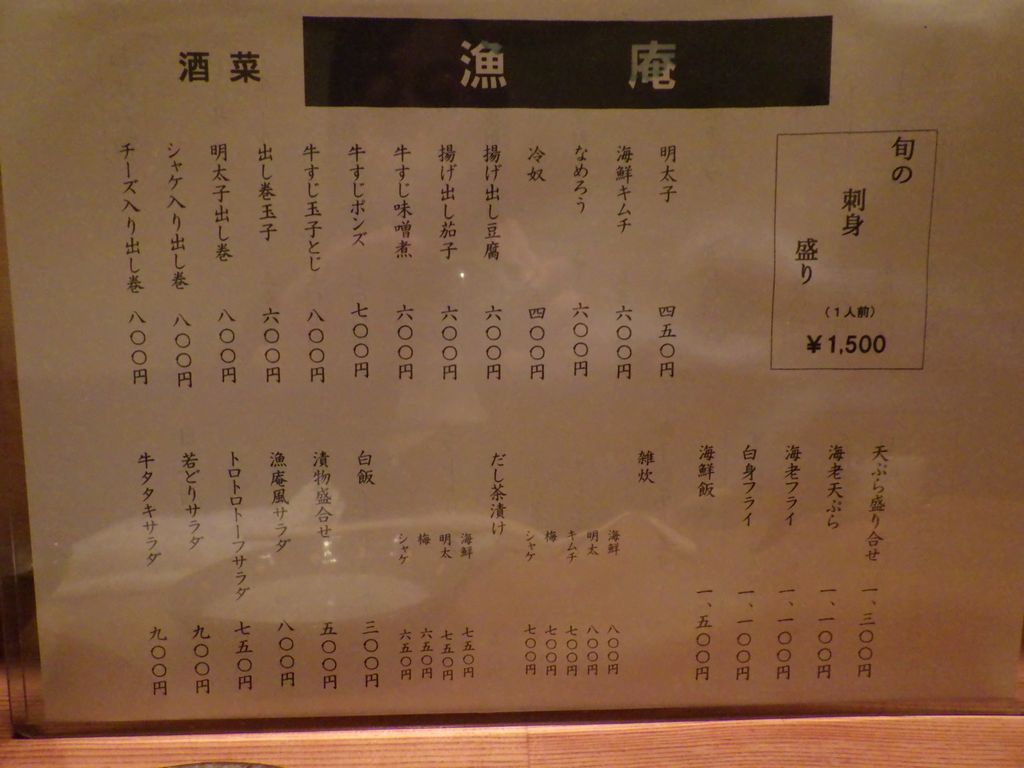 酒菜 漁庵
旬の
刺身
盛り
(1人前)
¥1,500
明太子 四五〇円
海鮮キムチ 六〇〇円
なめろう 六〇〇円
冷奴 四〇〇円
揚げ出し豆腐 六〇〇円
揚げ出し茄子 六〇〇円
牛すじ味噌煮 六〇〇円
牛すじポンズ 七〇〇円
牛すじ玉子とじ 八〇〇円
出し巻玉子 六〇〇円
明太子出し巻 八〇〇円
シャケ入り出し巻 八〇〇円
チーズ入り出し巻 八〇〇円
天ぷら盛り合せ 一、三〇〇円
海老天ぷら 一、一〇〇円
海老フライ 一、一〇〇円
白身フライ 一、一〇〇円
海鮮飯 一、五〇〇円
雑炊
海鮮 八〇〇円
明太 八〇〇円
キムチ 七〇〇円
梅 七〇〇円
シャケ 七〇〇円
だし茶漬け
海鮮 七五〇円
明太 七五〇円
梅 六五〇円
シャケ 六五〇円
白飯 三〇〇円
漬物盛合せ 五〇〇円
漁庵風サラダ 八〇〇円
トロトロトーフサラダ 七五〇円
若どりサラダ 九〇〇円
牛タタキサラダ 九〇〇円